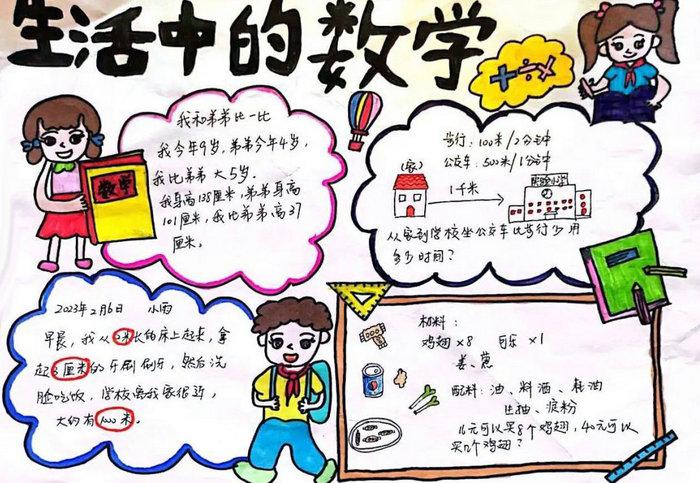 生活中的数学
我和弟弟比一比
我今年9岁,弟弟今年4岁,
我比弟弟大5岁。
我身高138厘米,弟弟身高
101厘米,我比弟弟高37
厘米。
数学
步行:100米/2分钟
公交车:500米/1分钟
(家)
1千米
实验小学
从家到学校坐公交车比步行少用
多少时间?
2023年2月6日 小雨
早晨,我从2米长的床上起来,拿
起3厘米的牙刷刷牙,然后洗
脸吃饭,学校离我家很近,
大约有1000米。
材料:
鸡翅×8 可乐×1
姜、葱
配料:油、料酒、耗油
生抽、淀粉
元可以买8个鸡翅,40元可以
买几个鸡翅?